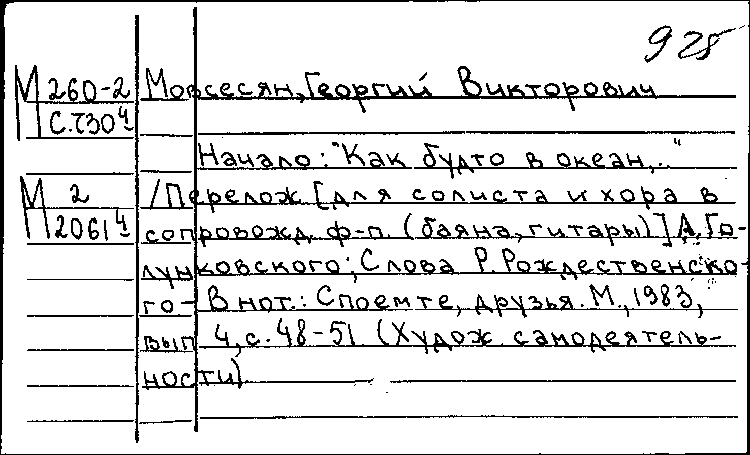 925
М 260-2 Мовсесян, Георгий Викторович
С.730ч
Начало: "Как будто в океан,.."
М 2 /Перелож. [для солиста и хора в
2061ч сопровожд. ф-п. (баяна, гитары)] А. Го-
лунковского; Слова Р. Рождественско-
го- В нот.: Споемте, друзья. М., 1983,
вып 4, с. 48-51 (Худож. самодеятель-
ности)